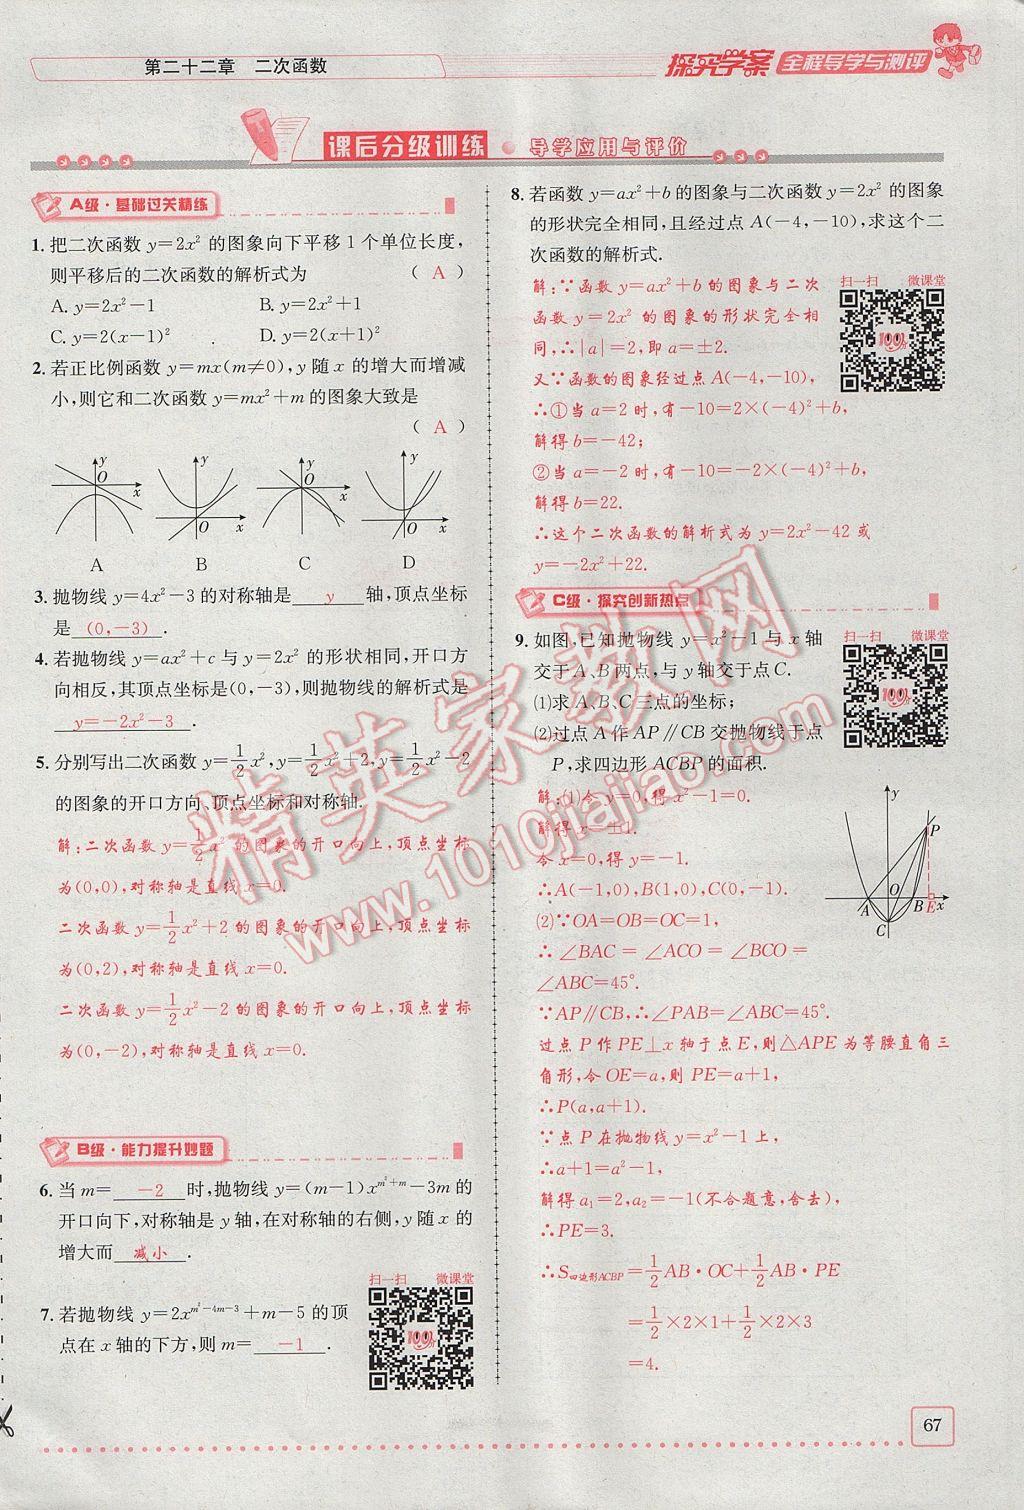 第二十二章　二次函数
探究学案 全程导学与测评
课后分级训练 · 导学应用与评价
A级·基础过关精练
1. 把二次函数 y=2x² 的图象向下平移 1 个单位长度，
则平移后的二次函数的解析式为 （ A ）
A. y=2x²−1　　B. y=2x²+1
C. y=2(x−1)²　　D. y=2(x+1)²
2. 若正比例函数 y=mx(m≠0)，y 随 x 的增大而增减
小，则它和二次函数 y=mx²+m 的图象大致是
（ A ）
y O x y O x y O x y O x
A B C D
3. 抛物线 y=4x²−3 的对称轴是 y 轴，顶点坐标
是 (0,−3) .
4. 若抛物线 y=ax²+c 与 y=2x² 的形状相同，开口方
向相反，其顶点坐标是(0,−3)，则抛物线的解析式是
y=−2x²−3 .
5. 分别写出二次函数 y=1/2x²，y=1/2x²+2，y=1/2x²−2
的图象的开口方向、顶点坐标和对称轴.
解：二次函数 y=1/2x² 的图象的开口向上，顶点坐标
为(0,0)，对称轴是直线 x=0.
二次函数 y=1/2x²+2 的图象的开口向上，顶点坐标
为(0,2)，对称轴是直线 x=0.
二次函数 y=1/2x²−2 的图象的开口向上，顶点坐标
为(0,−2)，对称轴是直线 x=0.
B级·能力提升妙题
6. 当 m= −2 时，抛物线 y=(m−1)x^{m²+m}−3m 的
开口向下，对称轴是 y 轴，在对称轴的右侧，y 随 x 的
增大而 减小 .
扫一扫　微课堂
7. 若抛物线 y=2x^{m²−4m−3}+m−5 的顶
点在 x 轴的下方，则 m= −1 .
100分
8. 若函数 y=ax²+b 的图象与二次函数 y=2x² 的图象
的形状完全相同，且经过点 A(−4,−10)，求这个二
次函数的解析式.
扫一扫　微课堂
100分
解：∵函数 y=ax²+b 的图象与二次
函数 y=2x² 的图象的形状完全相
同，∴|a|=2，即 a=±2.
又∵函数的图象经过点 A(−4,−10)，
∴①当 a=2 时，有−10=2×(−4)²+b，
解得 b=−42；
②当 a=−2 时，有−10=−2×(−4)²+b，
解得 b=22.
∴这个二次函数的解析式为 y=2x²−42 或
y=−2x²+22.
C级·探究创新热点
扫一扫　微课堂
100分
9. 如图，已知抛物线 y=x²−1 与 x 轴
交于 A、B 两点，与 y 轴交于点 C.
(1)求 A、B、C 三点的坐标；
(2)过点 A 作 AP∥CB 交抛物线于点
P，求四边形 ACBP 的面积.
解：(1)令 y=0，得 x²−1=0.
解得 x=±1.
令 x=0，得 y=−1.
∴A(−1,0)，B(1,0)，C(0,−1).
y P O A B E x C
(2)∵OA=OB=OC=1，
∴∠BAC=∠ACO=∠BCO=
∠ABC=45°.
∵AP∥CB，∴∠PAB=∠ABC=45°.
过点 P 作 PE⊥x 轴于点 E，则△APE 为等腰直角三
角形，令 OE=a，则 PE=a+1，
∴P(a,a+1).
∵点 P 在抛物线 y=x²−1 上，
∴a+1=a²−1，
解得 a₁=2，a₂=−1(不合题意，舍去)，
∴PE=3.
∴S四边形ACBP=1/2AB·OC+1/2AB·PE
=1/2×2×1+1/2×2×3
=4.
67
精英家教网
www.1010jiajiao.com